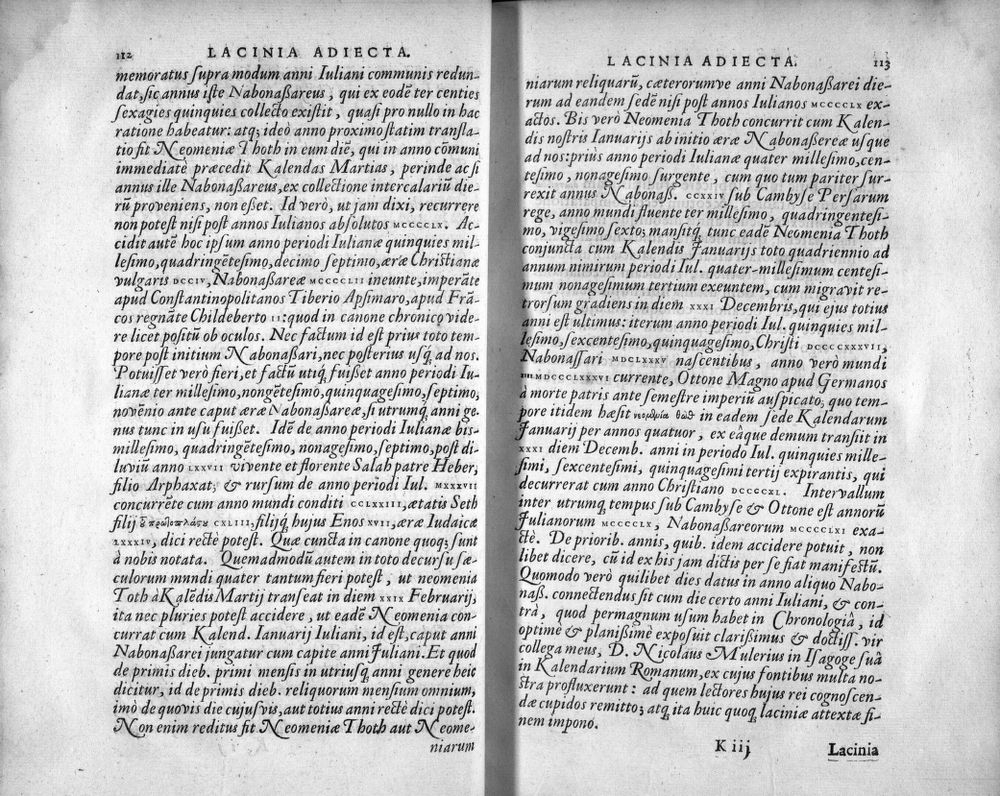 112 LACINIA ADIECTA.
memoratus supra modum anni Iuliani communis redun-
dat, sic annus iste Nabonaßareus, qui ex eodē ter centies
sexagies quinquies collecto existit, quasi pro nullo in hac
ratione habeatur: atq; ideò anno proximo statim transla-
tio fit Neomeniæ Thoth in eum diē, qui in anno cōmuni
immediatè præcedit Kalendas Martias, perinde ac si
annus ille Nabonaßareus, ex collectione intercalariū die-
rū proveniens, non eßet. Id verò, ut jam dixi, recurrere
non potest nisi post annos Iulianos absolutos MCCCCLX. Ac-
cidit autē hoc ipsum anno periodi Iulianæ quinquies mil-
lesimo, quadringētesimo, decimo septimo, æræ Christianæ
vulgaris DCCIV, Nabonaßareæ MCCCCLII ineunte, imperāte
apud Constantinopolitanos Tiberio Apsimaro, apud Frā-
cos regnāte Childeberto II: quod in canone chronico vide-
re licet positū ob oculos. Nec factum id est prius toto tem-
pore post initium Nabonaßari, nec posterius usq; ad nos.
Potuisset verò fieri, et factū utiq; fuißet anno periodi Iu-
lianæ ter millesimo, nongētesimo, quinquagesimo, septimo;
novēnio ante caput æræ Nabonaßareæ, si utrumq; anni ge-
nus tunc in usu fuißet. Idē de anno periodi Iulianæ bis-
millesimo, quadringētesimo, nonagesimo, septimo, post di-
luviū anno LXXVII vivente et florente Salah patre Heber,
filio Arphaxat; & rursum de anno periodi Iul. MXXXVII
concurrēte cum anno mundi conditi CCLXXIII, ætatis Seth
filij ȣ̃ πρωτοπλάςȣ CXLIII, filijq; hujus Enos XVII, æræ Iudaicæ
LXXXIV, dici rectè potest. Quæ cuncta in canone quoq; sunt
à nobis notata. Quemadmodū autem in toto decursu sæ-
culorum mundi quater tantum fieri potest, ut neomenia
Toth à Kalēdis Martij transeat in diem XXIX Februarij,
ita nec pluries potest accidere, ut eadē Neomenia con-
currat cum Kalend. Ianuarij Iuliani, id est, caput anni
Nabonaßarei jungatur cum capite anni Juliani. Et quod
de primis dieb. primi mensis in utriusq; anni genere heic
dicitur, id de primis dieb. reliquorum mensium omnium,
imò de quovis die cujusvis, aut totius anni rectè dici potest.
Non enim reditus fit Neomeniæ Thoth aut Neome-
niarum
LACINIA ADIECTA. 113
niarum reliquarū, cæterorumve anni Nabonaßarei die-
rum ad eandem sedē nisi post annos Iulianos MCCCCLX ex-
actos. Bis verò Neomenia Thoth concurrit cum Kalen-
dis nostris Ianuarijs ab initio æræ Nabonaßereæ usque
ad nos: priùs anno periodi Iulianæ quater millesimo, cen-
tesimo, nonagesimo surgente, cum quo tum pariter sur-
rexit annus Nabonaß. CCXXIV sub Cambyse Persarum
rege, anno mundi fluente ter millesimo, quadringentesi-
mo, vigesimo sexto; mansitq; tunc eadē Neomenia Thoth
conjuncta cum Kalendis Januarijs toto quadriennio ad
annum nimirum periodi Iul. quater-millesimum centesi-
mum nonagesimum tertium exeuntem, cum migravit re-
trorsum gradiens in diem XXXI Decembris, qui ejus totius
anni est ultimus: iterum anno periodi Iul. quinquies mil-
lesimo, sexcentesimo, quinquagesimo, Christi DCCCCXXXVII,
Nabonassari MDCLXXXV nascentibus, anno verò mundi
IIIIMDCCCLXXXVI currente, Ottone Magno apud Germanos
à morte patris ante semestre imperiū auspicato; quo tem-
pore itidem hæsit νεομηνία θωθ in eadem sede Kalendarum
Januarij per annos quatuor, ex eâque demum transiit in
XXXI diem Decemb. anni in periodo Iul. quinquies mille-
simi, sexcentesimi, quinquagesimi tertij expirantis, qui
decurrerat cum anno Christiano DCCCCXL. Intervallum
inter utrumq; tempus sub Cambyse & Ottone est annorū
Julianorum MCCCCLX, Nabonaßareorum MCCCCLXI exa-
ctè. De priorib. annis, quib. idem accidere potuit, non
libet dicere, cū id ex his jam dictis per se fiat manifestū.
Quomodo verò quilibet dies datus in anno aliquo Nabo-
naß. connectendus sit cum die certo anni Iuliani, & con-
trà, quod permagnum usum habet in Chronologiâ, id
optimè & planißimè exposuit clarißimus & doctiss. vir
collega meus, D. Nicolaus Mulerius in Isagoge suâ
in Kalendarium Romanum, ex cujus fontibus multa no-
stra profluxerunt: ad quem lectores hujus rei cognoscen-
dæ cupidos remitto; atq; ita huic quoq; laciniæ attextæ fi-
nem impono.
K iij Lacinia